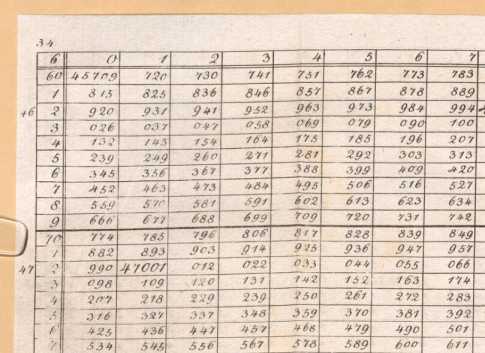 34
6 0 1 2 3 4 5 6 7
60 45709 720 730 741 751 762 773 783
1 815 825 836 846 857 867 878 889
46 2 920 931 941 952 963 973 984 994
3 026 037 047 058 069 079 090 100
4 132 143 154 164 175 185 196 207
5 239 249 260 271 281 292 303 313
6 345 356 367 377 388 399 409 420
7 452 463 473 484 495 506 516 527
8 559 570 581 591 602 613 623 634
9 666 677 688 699 709 720 731 742
70 774 785 796 806 817 828 839 849
1 882 893 903 914 925 936 947 957
47 2 990 47001 012 022 033 044 055 066
3 098 109 120 131 142 152 163 174
4 207 218 229 239 250 261 272 283
5 316 327 337 348 359 370 381 392
6 425 436 447 457 468 479 490 501
7 534 545 556 567 578 589 600 611